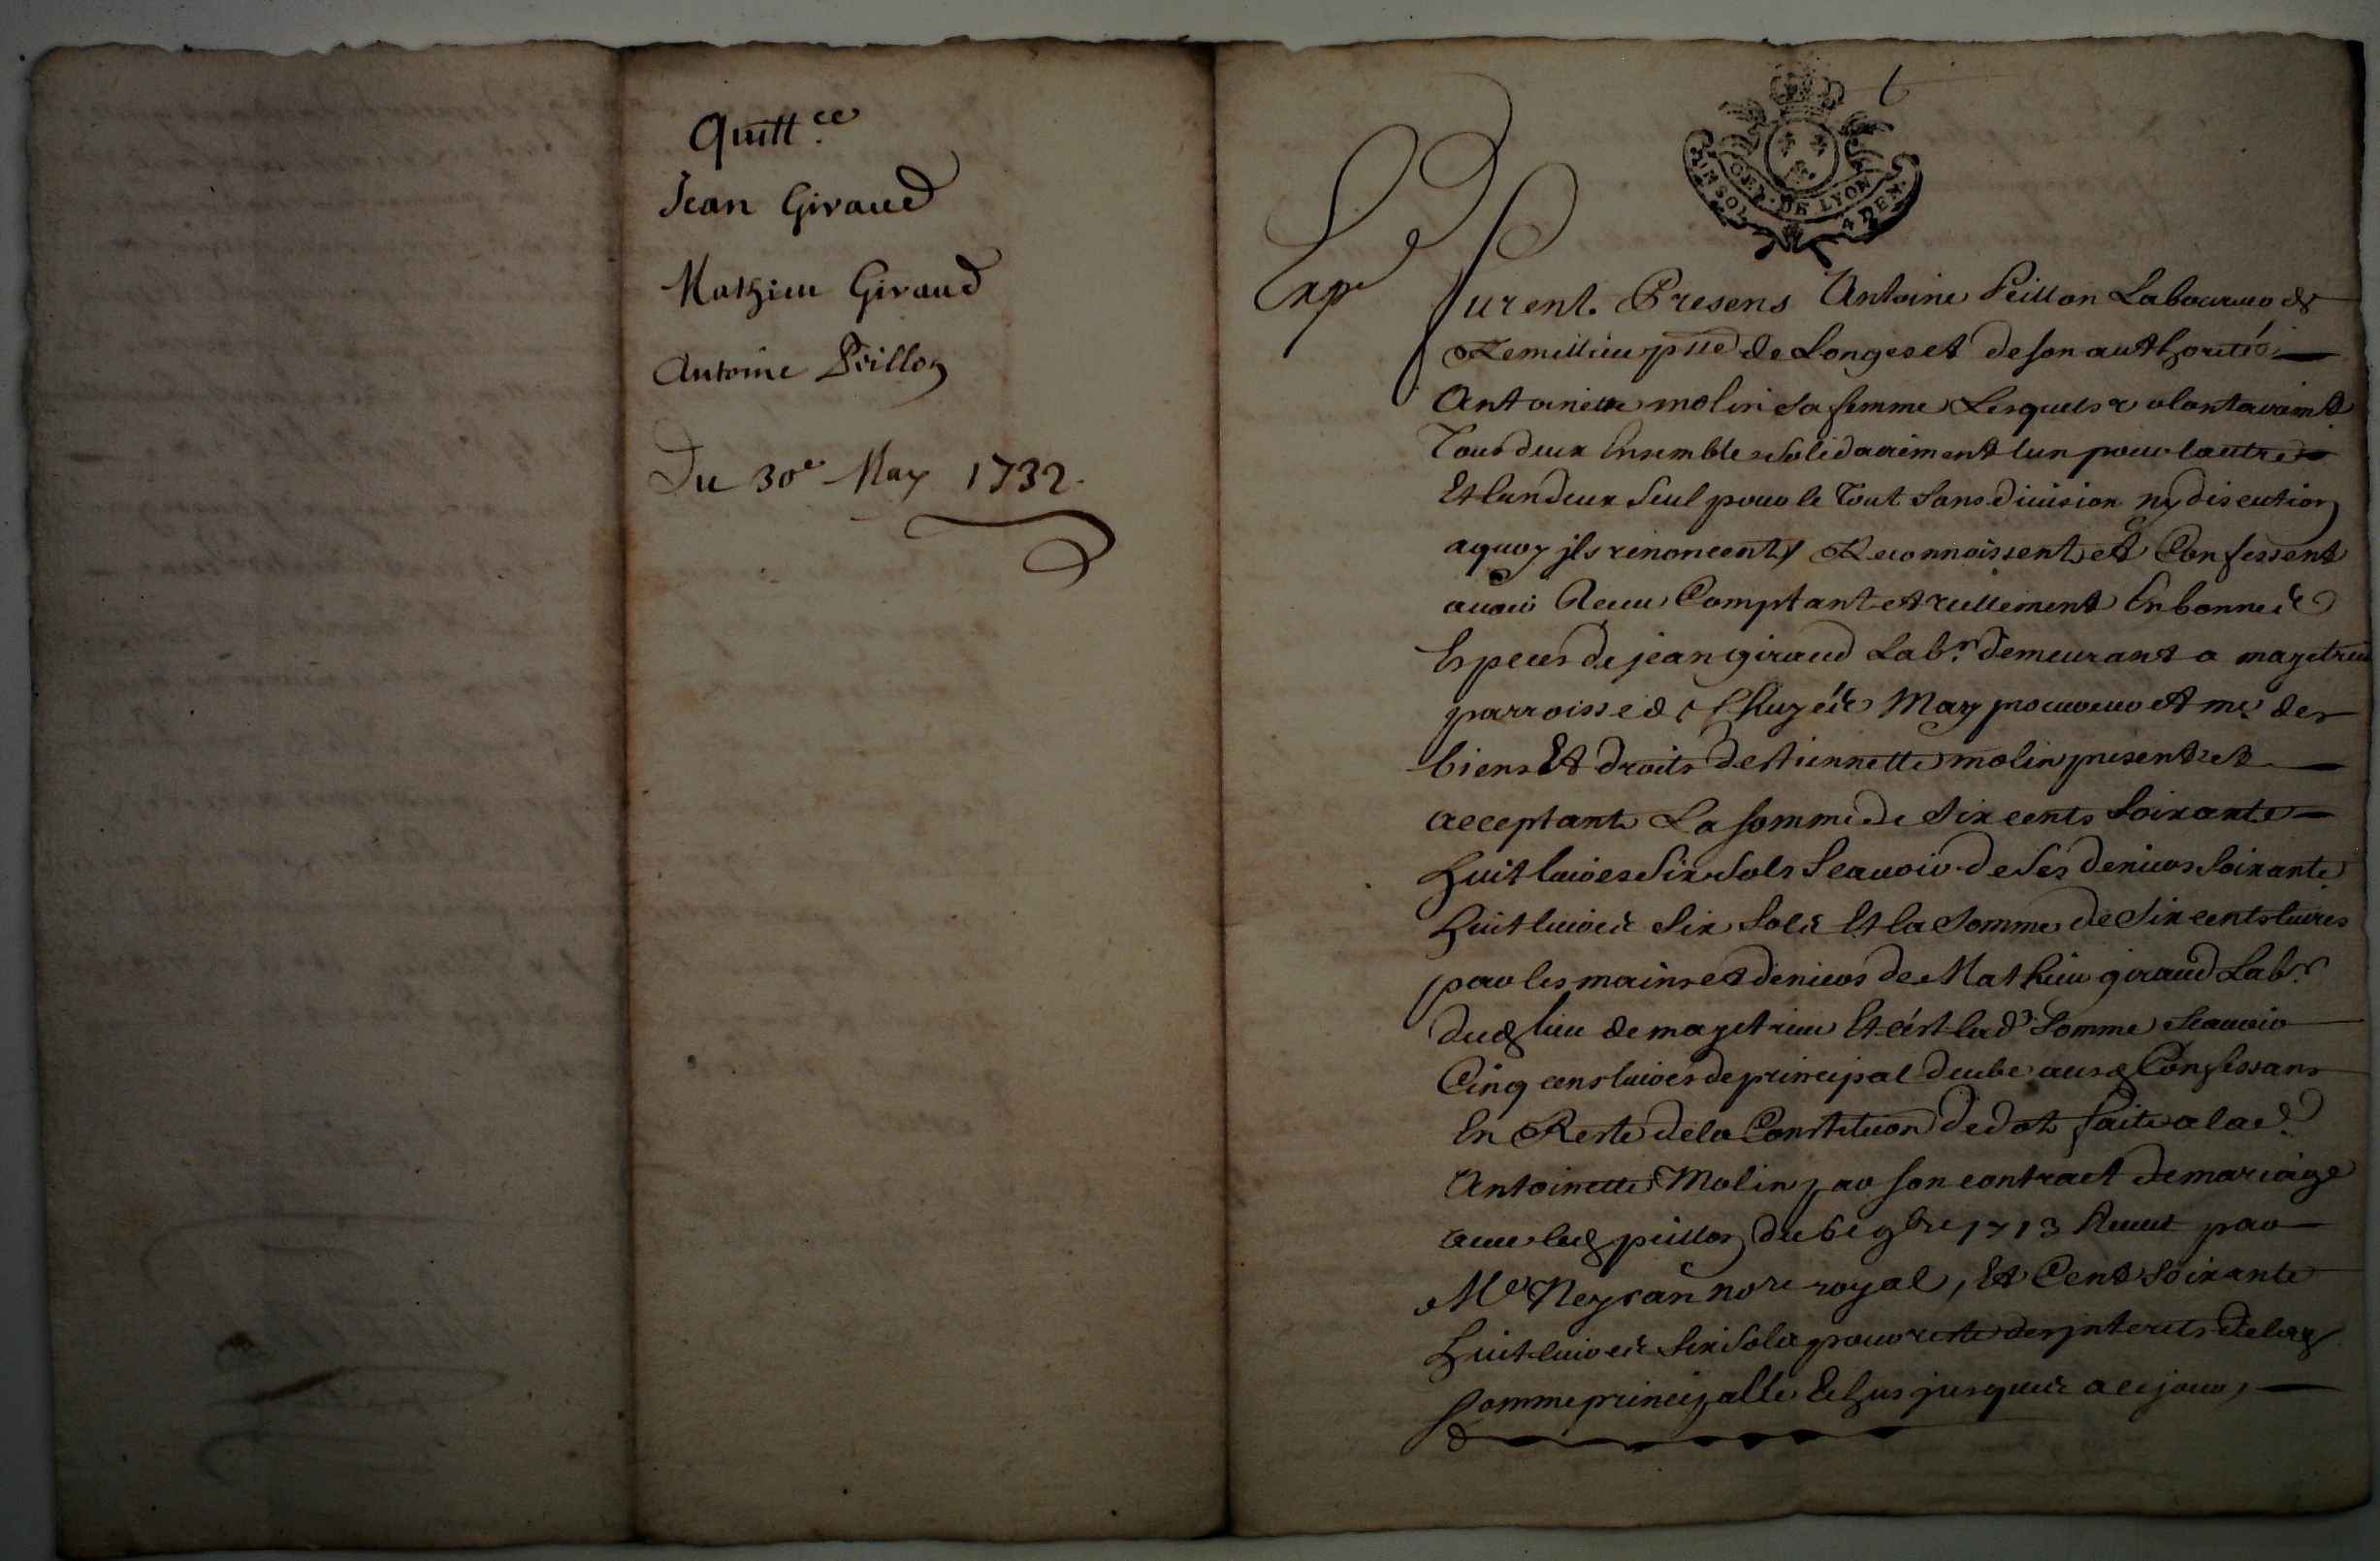 Quitt.ce
Jean Giraud
Mathieu Giraud
Antoine Peillon
Du 30e May 1732.
GEN. DE LYON
SOL 4 DEN.
Exp
Furent Presens Antoine Peillon Laboureur de
Remillieu psse de Longes et de son authorité
Antoinette molin sa femme Lesquels volontairemt
Tous deux Ensemble solidairement lun pour lautre
Et lun deux seul pour le Tout sans division ny discution
a quoy jls renoncent, Reconnoissent et Confessent
avoir Receu Comptant et réellement En bonnes
Especes de jean giraud Labr. demeurant a
parroisse de mary et me des
biens Et droits destiennette molin present et
acceptant La somme de six cents soixante
huit livres six sols scavoir de ses deniers soixante
huit livres six sols Et la somme de six cents livres
par les mains et deniers de Mathieu giraud Labr.
dud lieu de Et cest lad. somme scavoir
Cinq cens livres de principal deube ausd Confessans
En Reste de la Constitution de dot faite a lad.
Antoinette Molin par son contract de mariage
avec led peillon du 6e 9bre 1713 Receu par
Me nore royal, Et Cent soixante
huit livres six sols pour reste des jnterets de lad
somme principalle Echus jusques a ce jour,